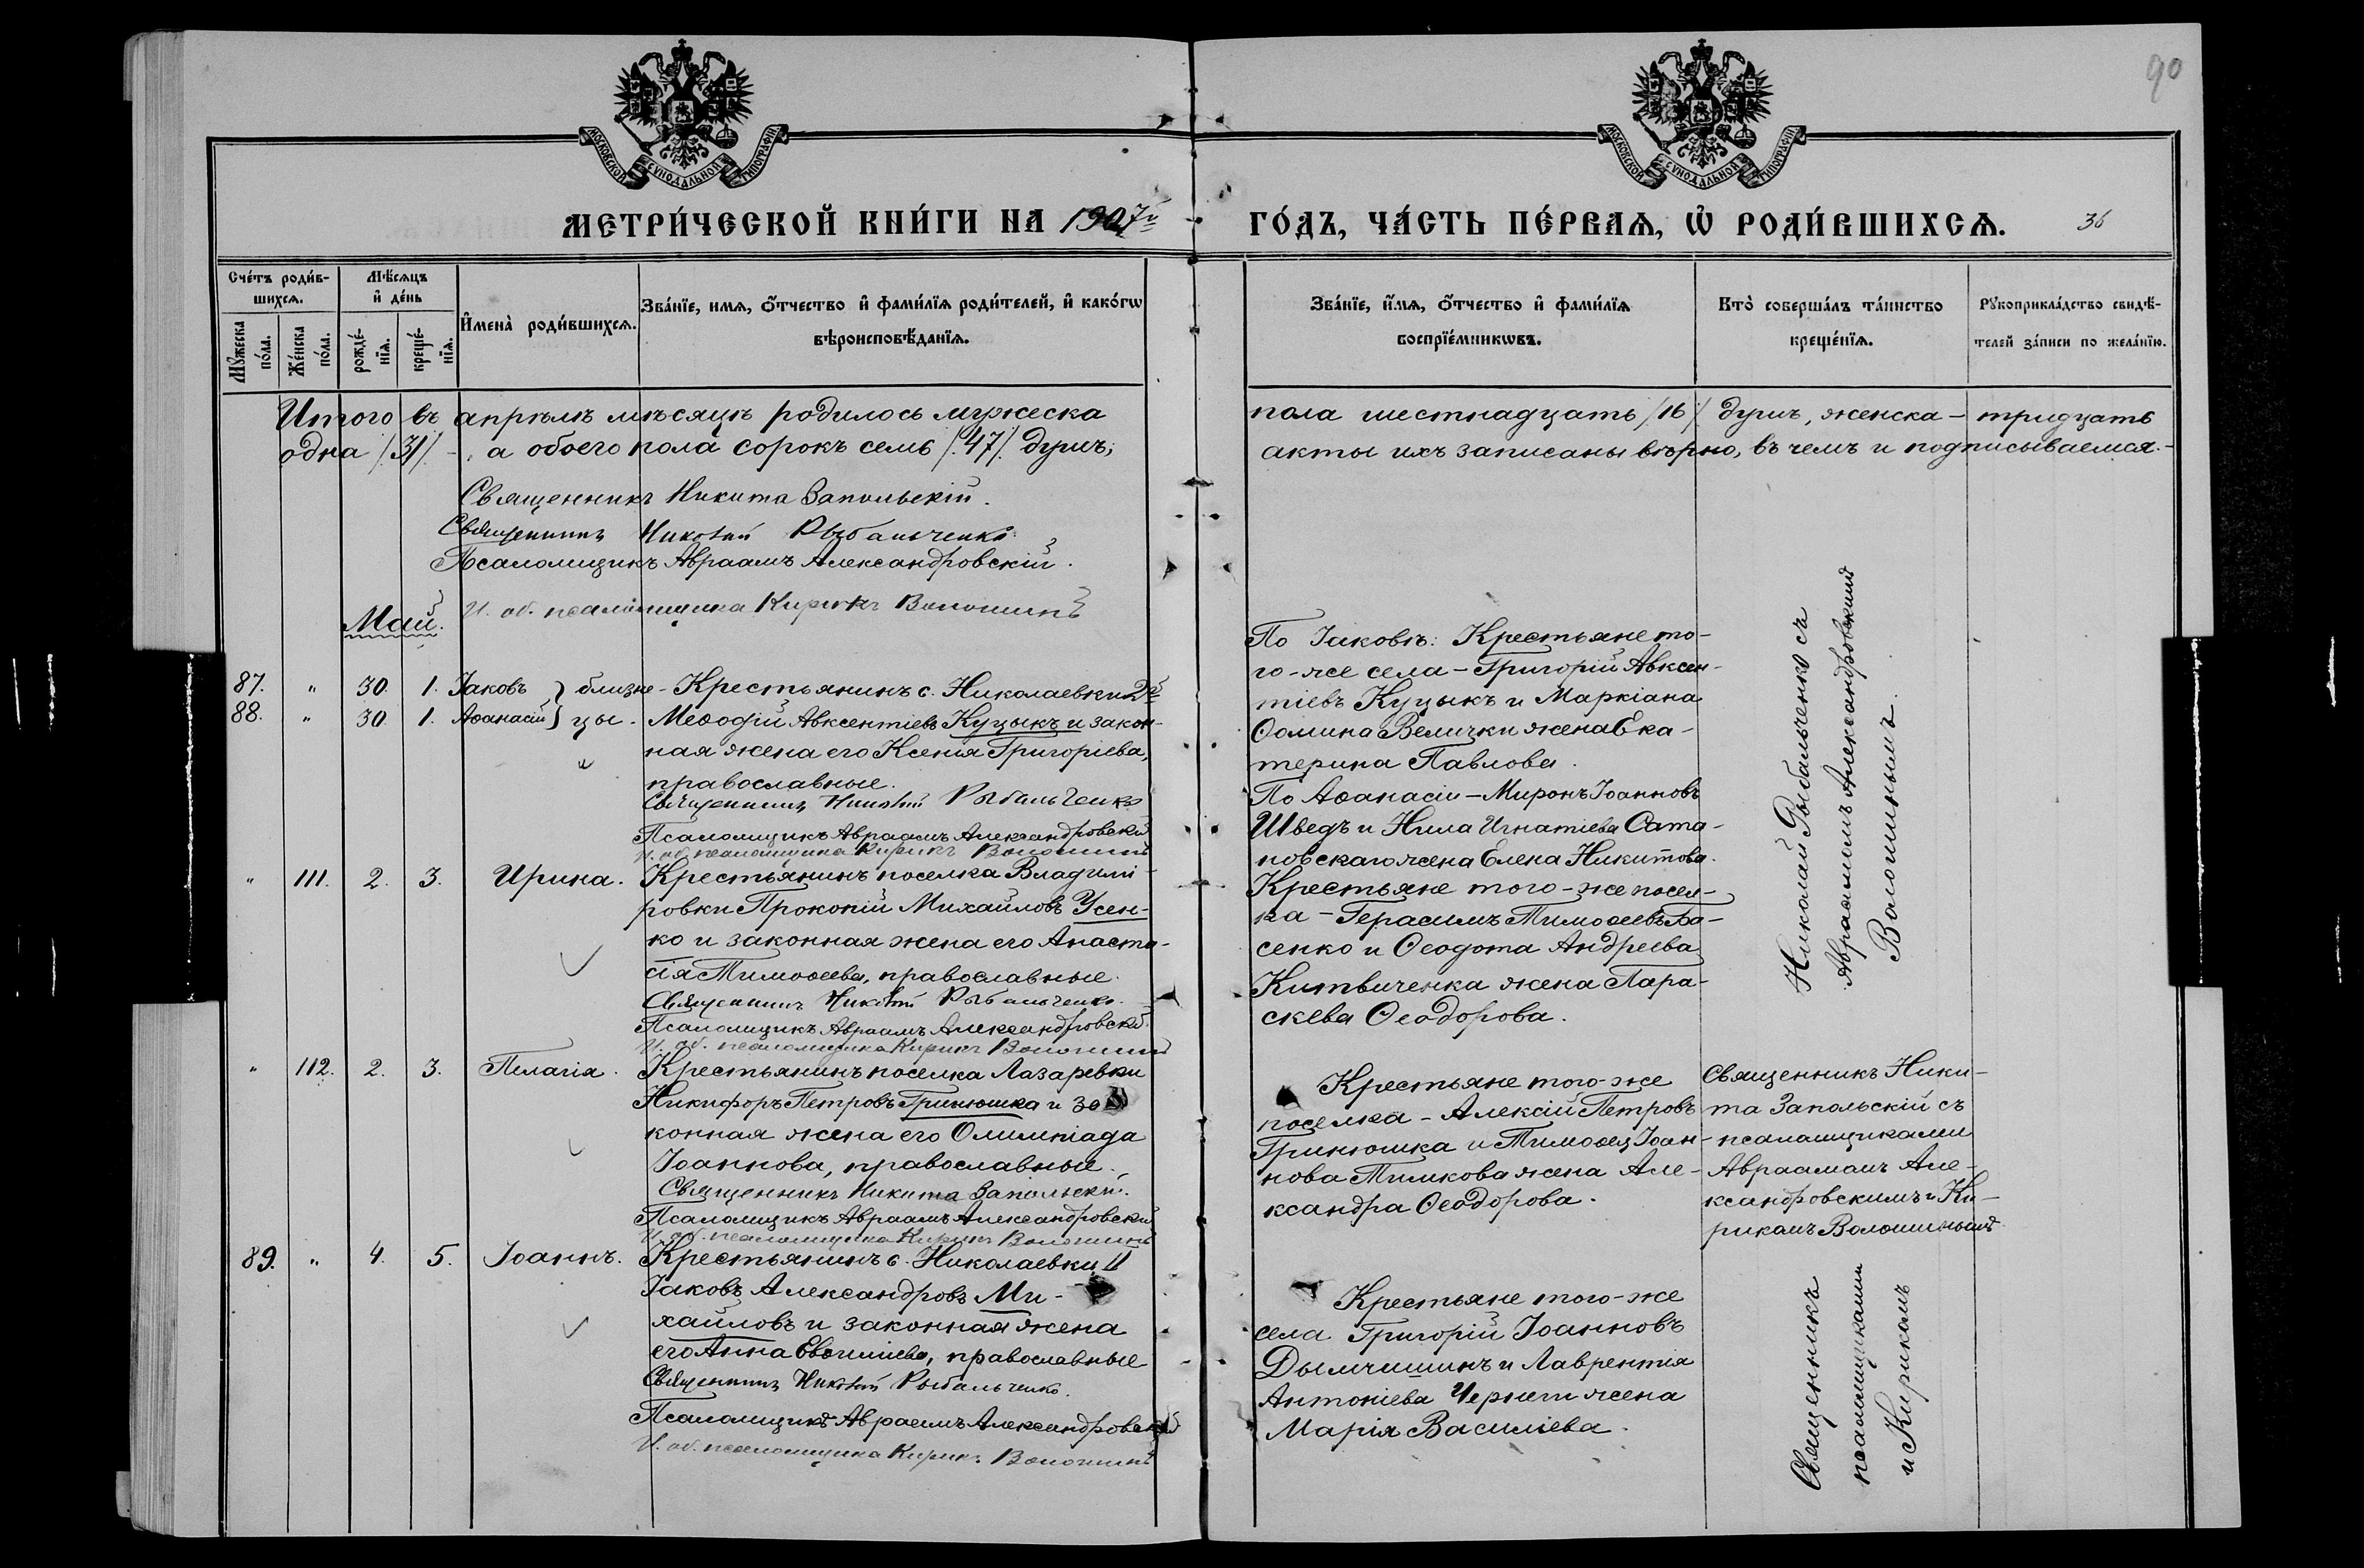 90
МОСКОВСКОЙ СѴНОДАЛЬНОЙ ТИПОГРАФІИ
МОСКОВСКОЙ СѴНОДАЛЬНОЙ ТИПОГРАФІИ
МЕТРИ́ЧЕСКОЙ КНИ́ГИ НА 1907й ГО́ДЪ, ЧА́СТЬ ПЕ́РВАѦ, Ѽ РОДИ́ВШИХСѦ. 36
Сче́тъ роди́в-
шихсѧ.
Мꙋ́жеска
по́ла.
Же́нска
по́ла.
Мѣ́сѧцъ
и҆ де́нь
рожде́-
нїѧ.
креще́-
нїѧ.
И҆мена̀ роди́вшихсѧ.
Зва́нїе, имѧ, ѻ҆́тчество и҆ фами́лїѧ роди́телей, и҆ како́гѡ
вѣроисповѣ́данїѧ.
Зва́нїе, и҆́мѧ, ѻ҆́тчество и҆ фами́лїѧ
воспрїе́мникѡвъ.
Кто̀ соверша́лъ та́инство
креще́нїѧ.
Рꙋкоприкла́дство свидѣ́-
телей за́писи по жела́нїю.
Итого въ апрѣлѣ мѣсяцѣ родилось мужеска пола шестнадцать /16/ душъ, женска – тридцать
одна /31/ –, а обоего пола сорокъ семь /47/. душъ; акты ихъ записаны вѣрно, въ чемъ и подписываемся. –
Священникъ Никита Запольскій.
Священникъ Николай Рыбальченко
Псаломщикъ Авраамъ Александровскій.
И. об. псаломщика Кирикъ Волошинъ
Май.
87. " 30. 1. Іаковъ } близне-
88. " 30. 1. Аѳанасій } цы.
Крестьянинъ с. Николаевки 2й
Меѳодій Авксентіевъ Куцыкъ и закон-
ная жена его Ксенія Григоріева,
православные.
Священникъ Николай Рыбальченко
Псаломщикъ Авраамъ Александровскій
И. об. псаломщика Кирикъ Волошинъ
По Іаковѣ: Крестьяне то-
го-же села – Григорій Авксен-
тіевъ Куцыкъ и Маркіана
Ѳомина Велички жена Ека-
терина Павлова.
По Аѳанасіи – Миронъ Іоанновъ
Шведъ и Нила Игнатіева Сата-
новскаго жена Елена Никитова.
" 111. 2. 3. Ирина.
Крестьянинъ поселка Владими-
ровки Прокопій Михайловъ Усен-
ко и законная жена его Анаста-
сія Тимоѳеева, православные.
Священникъ Николай Рыбальченко.
Псаломщикъ Авраамъ Александровскій
И. об. псаломщика Кирикъ Волошинъ
Крестьяне того-же посел-
ка – Герасимъ Тимоѳеевъ Ба-
сенко и Ѳеодота Андреева
Китвиченка жена Пара-
скева Ѳеодорова.
" 112. 2. 3. Пелагія.
Крестьянинъ поселка Лазаревки
Никифоръ Петровъ Гринюшка и за-
конная жена его Олимпіада
Іоаннова, православные.
Священникъ Никита Запольскій.
Псаломщикъ Авраамъ Александровскій
И. об. псаломщика Кирикъ Волошинъ
Крестьяне того-же
поселка – Алексій Петровъ
Гринюшка и Тимоѳея Іоан-
нова Тимкова жена Але-
ксандра Ѳеодорова.
Священникъ Ники-
та Запольскій съ
псаломщиками
Авраамомъ Але-
ксандровскимъ и Ки-
рикомъ Волошинымъ
89. " 4. 5. Іоаннъ.
Крестьянинъ с. Николаевки II
Іаковъ Александровъ Ми-
хайловъ и законная жена
его Анна Евѳиміева, православные
Священникъ Николай Рыбальченко.
Псаломщикъ Авраамъ Александровскій
И. об. псаломщика Кирикъ Волошинъ
Крестьяне того-же
села Григорій Іоанновъ
Дымчишинъ и Лаврентія
Антоніева Чернеги жена
Марія Василіева.
Священникъ Николай Рыбальченко съ
псаломщиками Авраамомъ Александровскимъ
и Кирикомъ Волошинымъ.